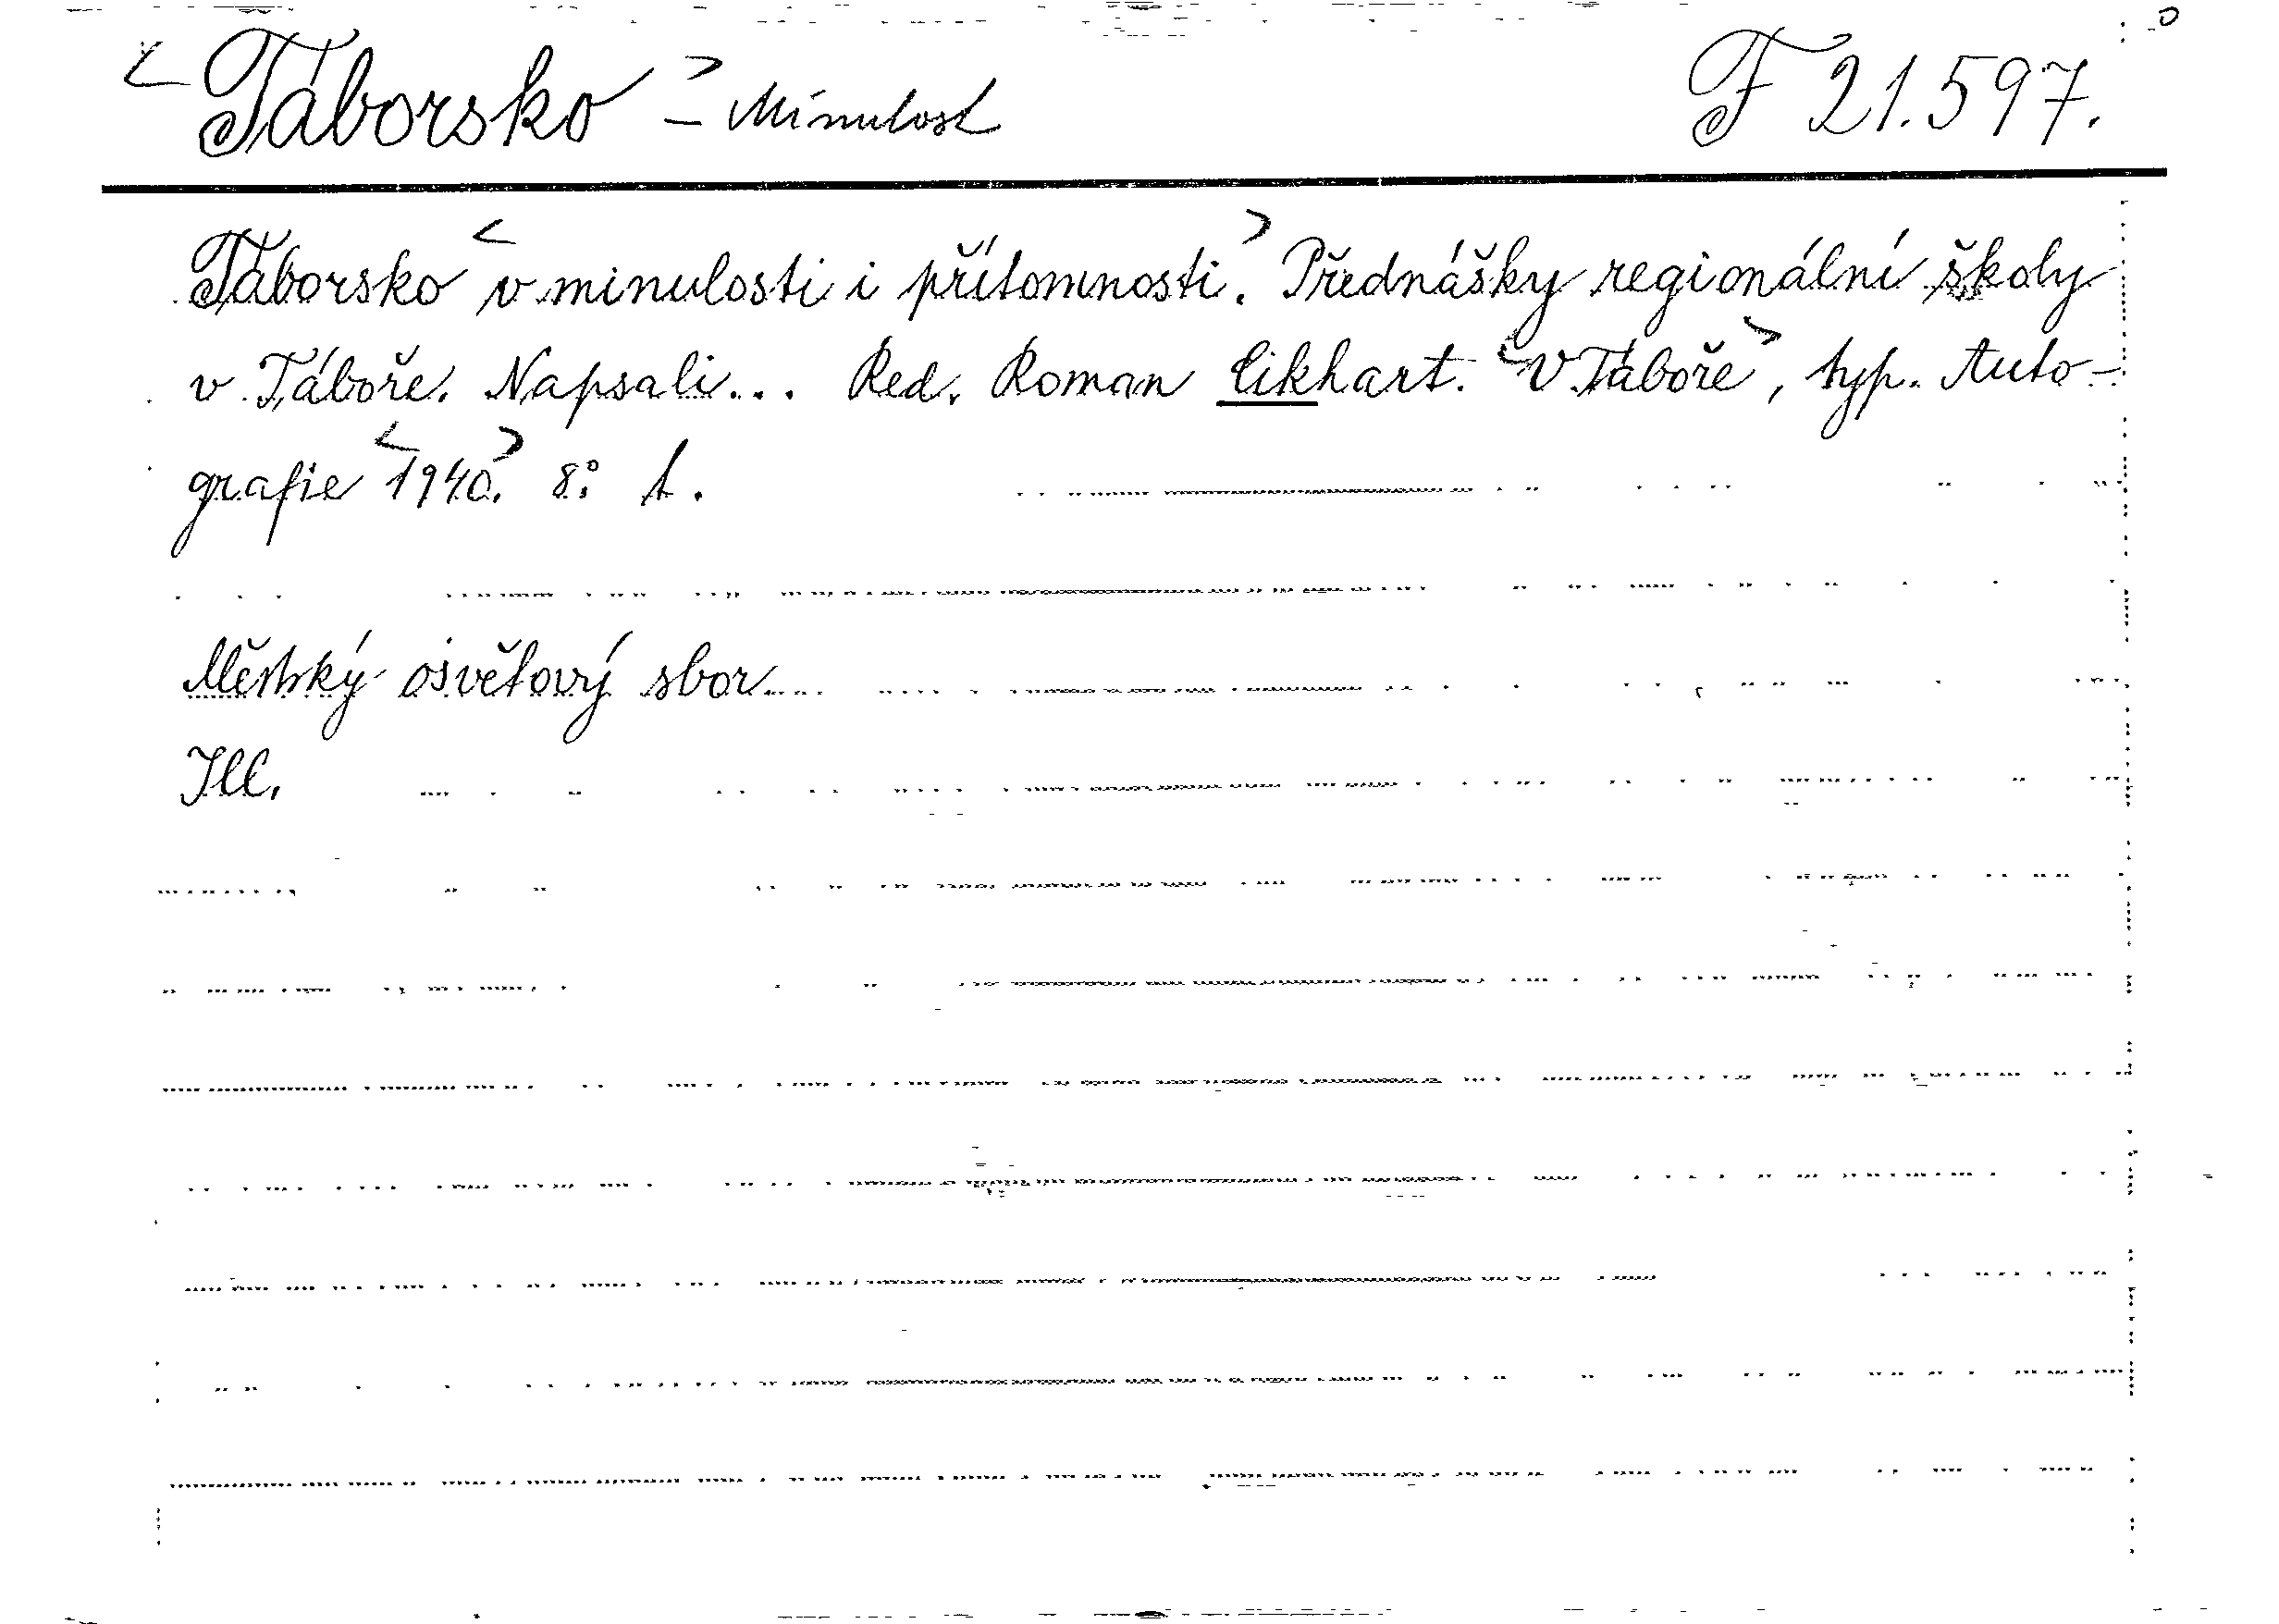 <Táborsko> – Minulost F 21.597.
Táborsko <v minulosti i přítomnosti.> Přednášky regionální školy
v Táboře. Napsali... Red. Roman Cikhart. <V Táboře>, typ. Auto-
grafie <1940>. 8°.
Městský osvětový sbor...
Ill.